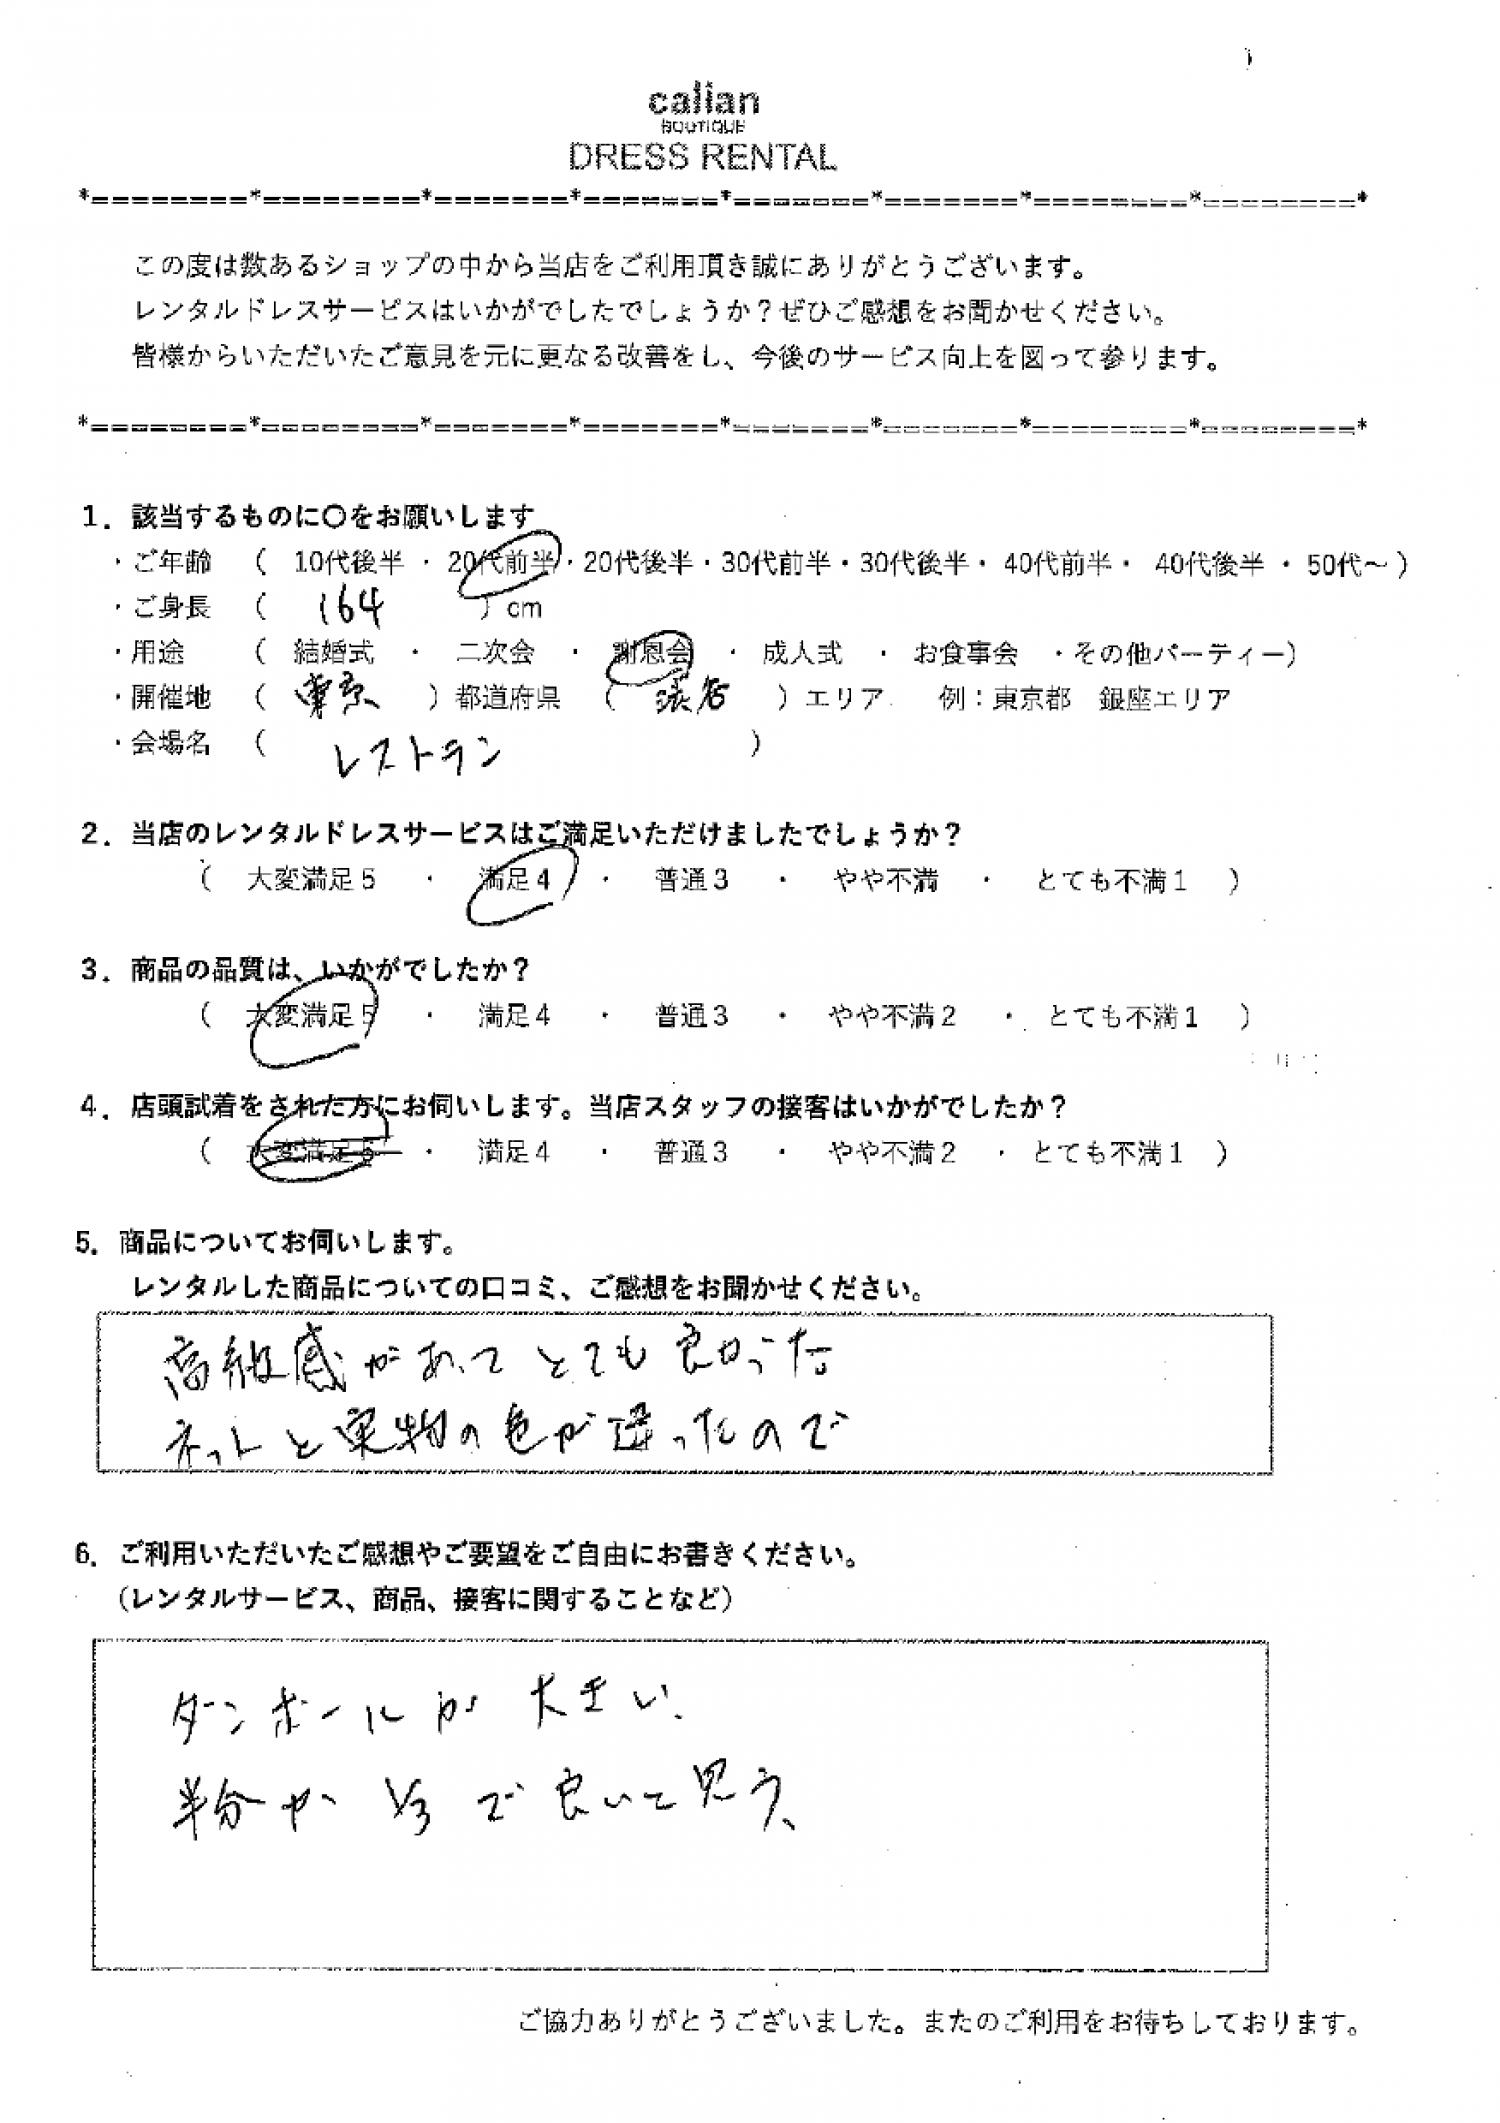 calian
BOUTIQUE
DRESS RENTAL
*========*========*=======*=======*=======*=======*========*========*
この度は数あるショップの中から当店をご利用頂き誠にありがとうございます。
レンタルドレスサービスはいかがでしたでしょうか？ぜひご感想をお聞かせください。
皆様からいただいたご意見を元に更なる改善をし、今後のサービス向上を図って参ります。
*========*========*=======*=======*=======*=======*========*========*
1．該当するものに〇をお願いします
・ご年齢 （ 10代後半 ・ 20代前半・20代後半・30代前半・30代後半・ 40代前半・ 40代後半 ・ 50代～）
・ご身長 （ 164 ）cm
・用途 （ 結婚式 ・ 二次会 ・ 謝恩会 ・ 成人式 ・ お食事会 ・その他パーティー）
・開催地 （ 東京 ）都道府県 （ 渋谷 ）エリア 例：東京都 銀座エリア
・会場名 （ レストラン ）
2．当店のレンタルドレスサービスはご満足いただけましたでしょうか？
（ 大変満足５ ・ 満足４ ・ 普通３ ・ やや不満 ・ とても不満１ ）
3．商品の品質は、いかがでしたか？
（ 大変満足５ ・ 満足４ ・ 普通３ ・ やや不満２ ・ とても不満１ ）
4．店頭試着をされた方にお伺いします。当店スタッフの接客はいかがでしたか？
（ 大変満足５ ・ 満足４ ・ 普通３ ・ やや不満２ ・ とても不満１ ）
5．商品についてお伺いします。
レンタルした商品についての口コミ、ご感想をお聞かせください。
高級感があってとても良かった
ネットと実物の色が違ったので
6．ご利用いただいたご感想やご要望をご自由にお書きください。
（レンタルサービス、商品、接客に関することなど）
ダンボールが大きい、
半分か 1/3 で良いと思う、
ご協力ありがとうございました。またのご利用をお待ちしております。